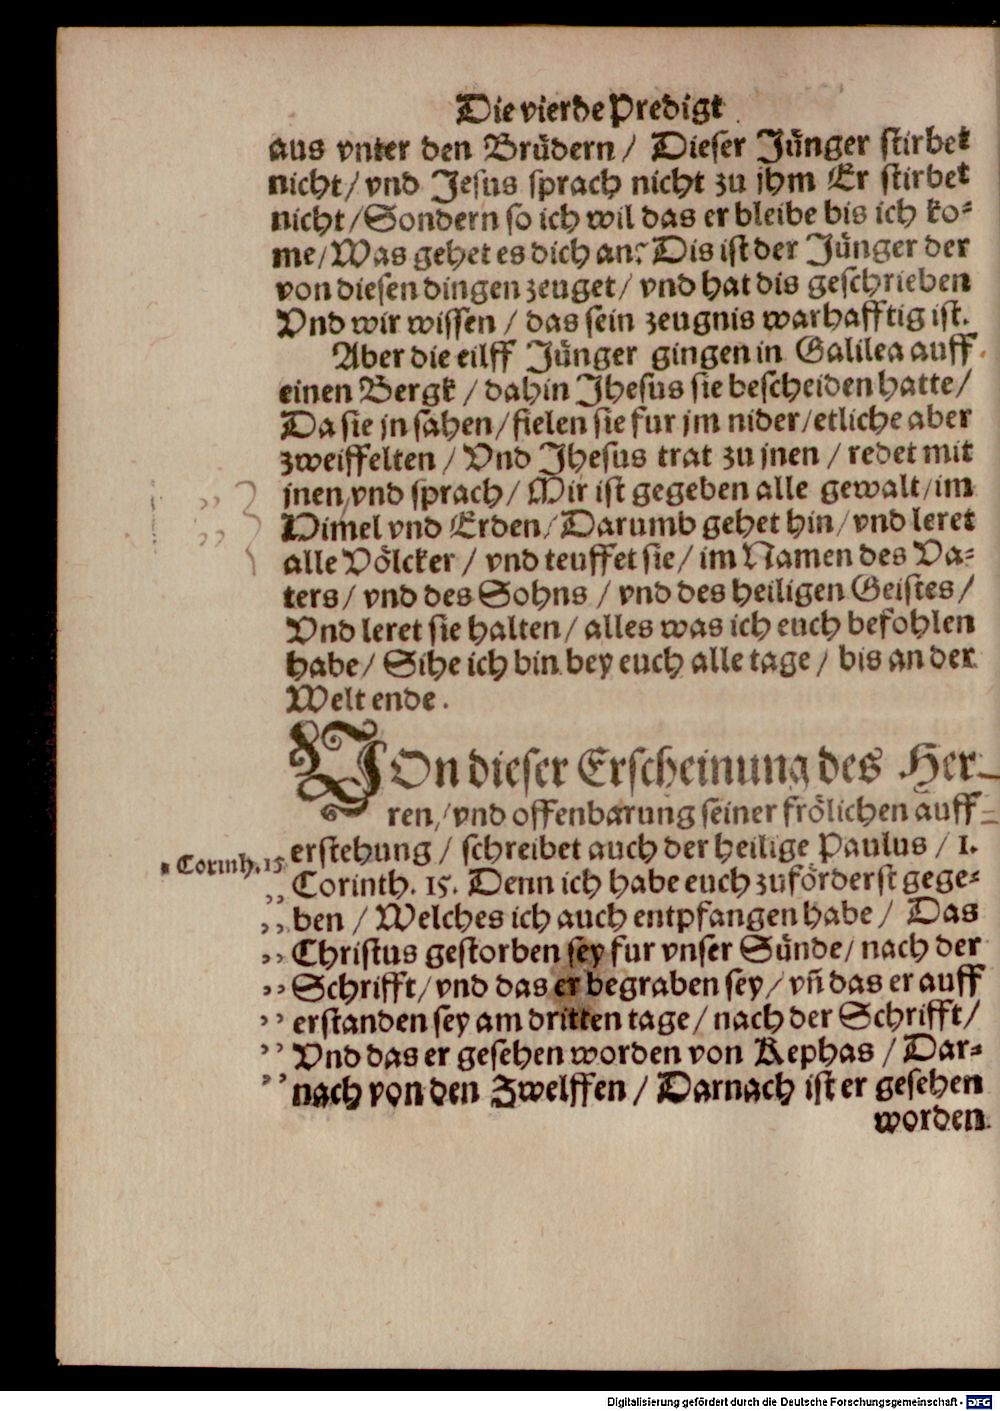 Die vierde Predigt
aus vnter den Brüdern / Dieser Jünger stirbet
nicht / vnd Jesus sprach nicht zu jhm Er stirbet
nicht / Sondern so ich wil das er bleibe bis ich ko-
me / Was gehet es dich an? Dis ist der Jünger der
von diesen dingen zeuget / vnd hat dis geschrieben
Vnd wir wissen / das sein zeugnis warhafftig ist.
Aber die eilff Jünger gingen in Galilea auff
einen Bergk / dahin Jhesus sie bescheiden hatte /
Da sie jn sahen / fielen sie fur jm nider / etliche aber
zweiffelten / Vnd Jhesus trat zu jnen / redet mit
jnen / vnd sprach / Mir ist gegeben alle gewalt / im
Himel vnd Erden / Darumb gehet hin / vnd leret
alle Völcker / vnd teuffet sie / im Namen des Va-
ters / vnd des Sohns / vnd des heiligen Geistes /
Vnd leret sie halten / alles was ich euch befohlen
habe / Sihe ich bin bey euch alle tage / bis an der
Welt ende.
VOn dieser Erscheinung des Her-
ren / vnd offenbarung seiner frölichen auff-
erstehung / schreibet auch der heilige Paulus / 1.
1 Corinth. 15
Corinth. 15. Denn ich habe euch zuförderst gege-
ben / Welches ich auch entpfangen habe / Das
Christus gestorben sey fur vnser Sünde / nach der
Schrifft / vnd das er begraben sey / vñ das er auff
erstanden sey am dritten tage / nach der Schrifft /
Vnd das er gesehen worden von Kephas / Dar-
nach von den Zwelffen / Darnach ist er gesehen
worden
Digitalisierung gefördert durch die Deutsche Forschungsgemeinschaft - DFG